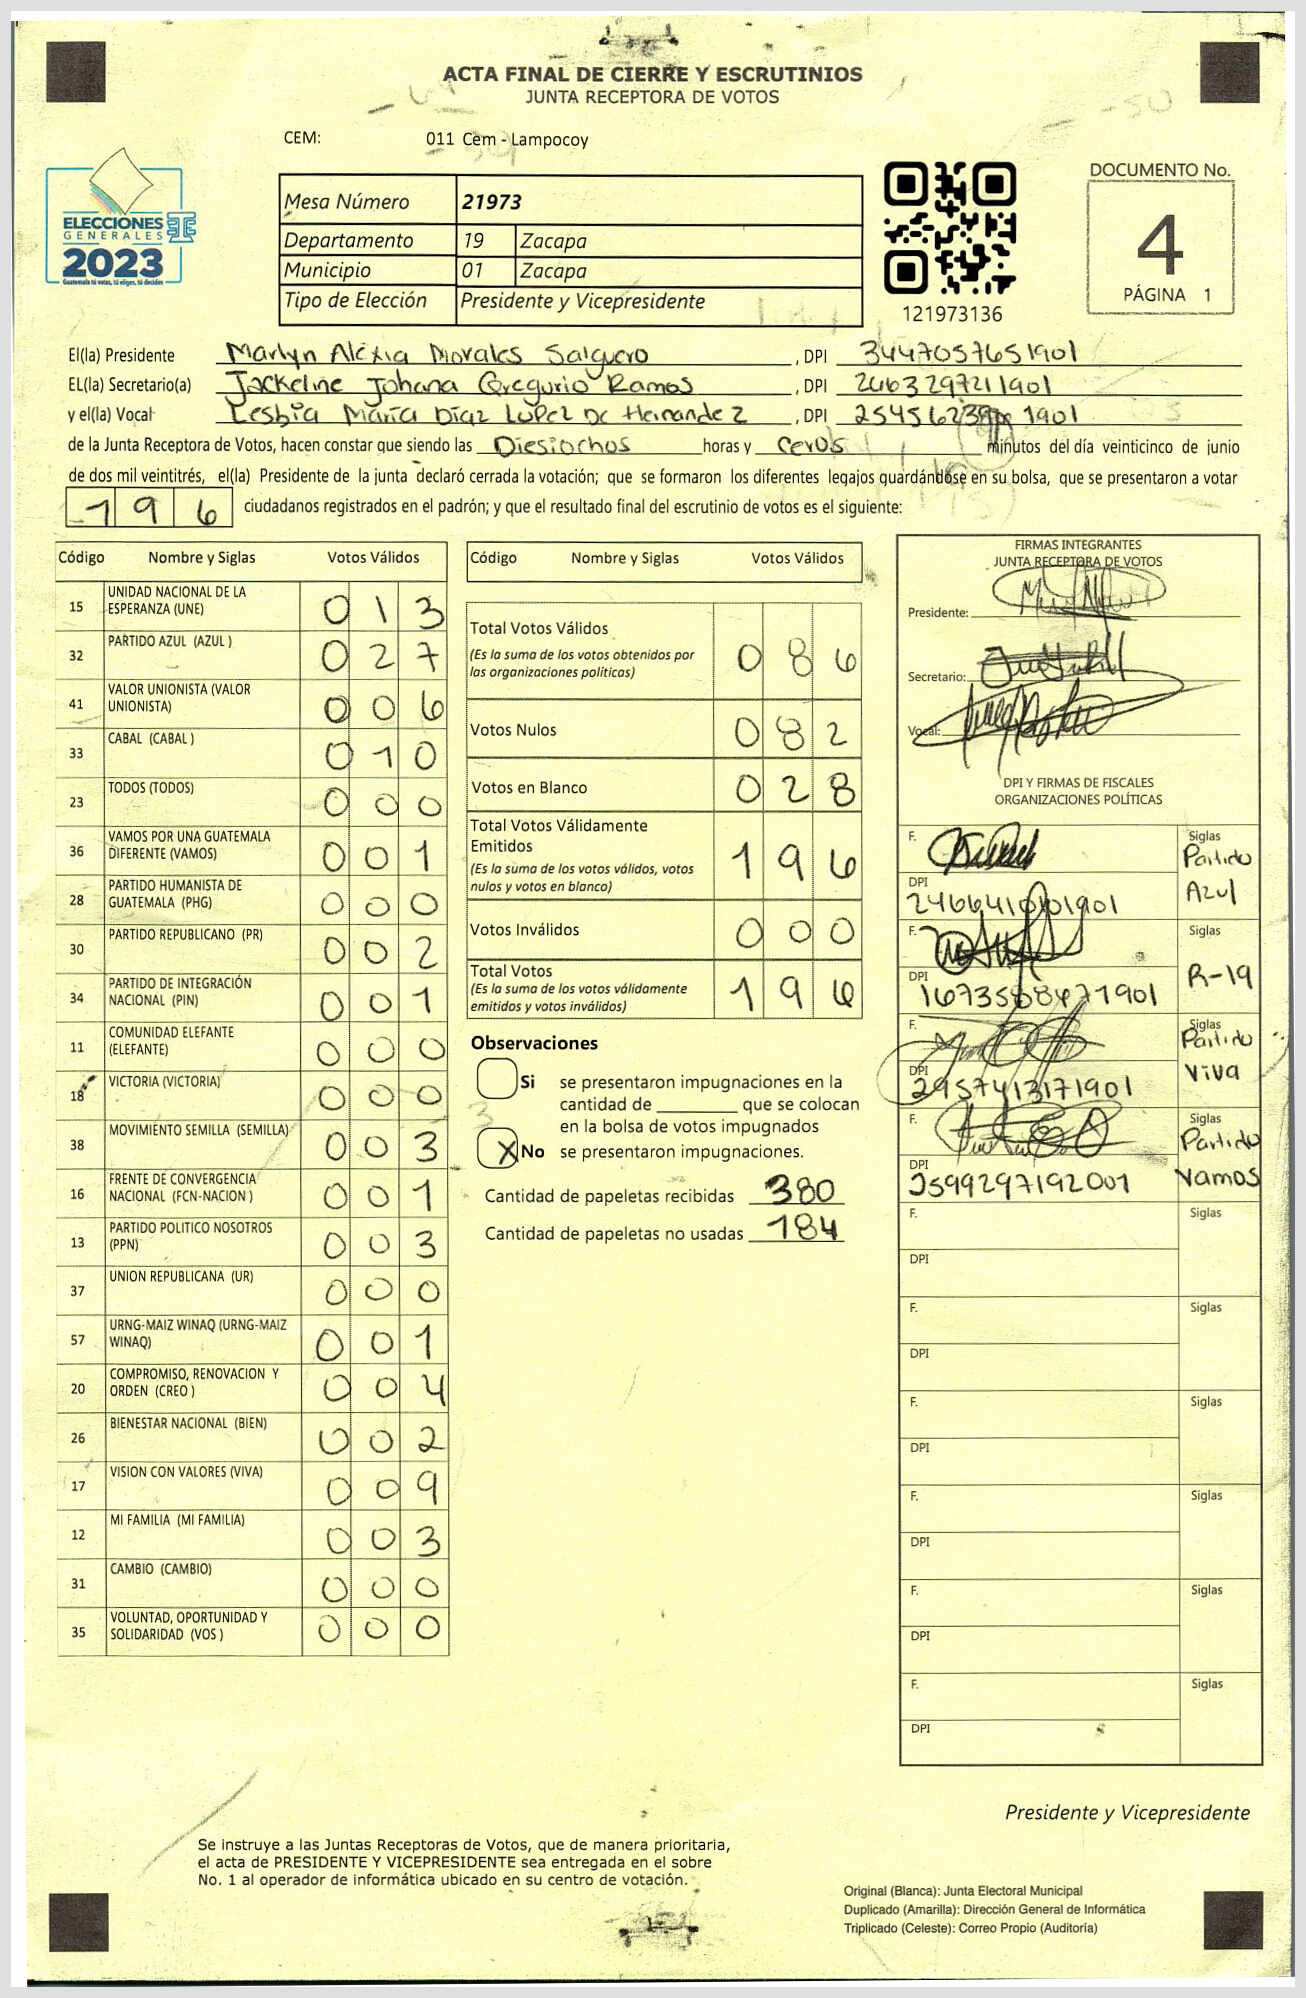 ACTA FINAL DE CIERRE Y ESCRUTINIOS
JUNTA RECEPTORA DE VOTOS
CEM: 011 Cem - Lampocoy
ELECCIONES
GENERALES
2023
Guatemala tú votas, tú eliges, tú decides
Mesa Número 21973
Departamento 19 Zacapa
Municipio 01 Zacapa
Tipo de Elección Presidente y Vicepresidente
121973136
DOCUMENTO No.
4
PÁGINA 1
El(la) Presidente Marlyn Alexia Morales Salguero , DPI 3447057651901
EL(la) Secretario(a) Jackeline Johana Gregorio Ramos , DPI 2463297211901
y el(la) Vocal Lesbia María Díaz López De Hernandez , DPI 1901
de la Junta Receptora de Votos, hacen constar que siendo las Diesiochos horas y ceros minutos del día veinticinco de junio
de dos mil veintitrés, el(la) Presidente de la junta declaró cerrada la votación; que se formaron los diferentes legajos guardándose en su bolsa, que se presentaron a votar
196 ciudadanos registrados en el padrón; y que el resultado final del escrutinio de votos es el siguiente:
Código Nombre y Siglas Votos Válidos
15 UNIDAD NACIONAL DE LA ESPERANZA (UNE) 013
32 PARTIDO AZUL (AZUL ) 027
41 VALOR UNIONISTA (VALOR UNIONISTA) 006
33 CABAL (CABAL ) 010
23 TODOS (TODOS) 000
36 VAMOS POR UNA GUATEMALA DIFERENTE (VAMOS) 001
28 PARTIDO HUMANISTA DE GUATEMALA (PHG) 000
30 PARTIDO REPUBLICANO (PR) 002
34 PARTIDO DE INTEGRACIÓN NACIONAL (PIN) 001
11 COMUNIDAD ELEFANTE (ELEFANTE) 000
18 VICTORIA (VICTORIA) 000
38 MOVIMIENTO SEMILLA (SEMILLA) 003
16 FRENTE DE CONVERGENCIA NACIONAL (FCN-NACION ) 001
13 PARTIDO POLITICO NOSOTROS (PPN) 003
37 UNION REPUBLICANA (UR) 000
57 URNG-MAIZ WINAQ (URNG-MAIZ WINAQ) 001
20 COMPROMISO, RENOVACION Y ORDEN (CREO ) 004
26 BIENESTAR NACIONAL (BIEN) 002
17 VISION CON VALORES (VIVA) 009
12 MI FAMILIA (MI FAMILIA) 003
31 CAMBIO (CAMBIO) 000
35 VOLUNTAD, OPORTUNIDAD Y SOLIDARIDAD (VOS ) 000
Código Nombre y Siglas Votos Válidos
Total Votos Válidos 086
(Es la suma de los votos obtenidos por
las organizaciones políticas)
Votos Nulos 082
Votos en Blanco 028
Total Votos Válidamente
Emitidos 196
(Es la suma de los votos válidos, votos
nulos y votos en blanco)
Votos Inválidos 000
Total Votos 196
(Es la suma de los votos válidamente
emitidos y votos inválidos)
Observaciones
Si se presentaron impugnaciones en la
cantidad de ________ que se colocan
en la bolsa de votos impugnados
X No se presentaron impugnaciones.
Cantidad de papeletas recibidas 380
Cantidad de papeletas no usadas 184
FIRMAS INTEGRANTES
JUNTA RECEPTORA DE VOTOS
Presidente:
Secretario:
Vocal:
DPI Y FIRMAS DE FISCALES
ORGANIZACIONES POLÍTICAS
F. Siglas Partido Azul
DPI
F. Siglas R-19
DPI
F. Siglas Partido Viva
DPI 2957413171901
F. Siglas Partido Vamos
DPI 2599297192001
F. Siglas
DPI
F. Siglas
DPI
F. Siglas
DPI
F. Siglas
DPI
F. Siglas
DPI
F. Siglas
DPI
Presidente y Vicepresidente
Se instruye a las Juntas Receptoras de Votos, que de manera prioritaria,
el acta de PRESIDENTE Y VICEPRESIDENTE sea entregada en el sobre
No. 1 al operador de informática ubicado en su centro de votación.
Original (Blanca): Junta Electoral Municipal
Duplicado (Amarilla): Dirección General de Informática
Triplicado (Celeste): Correo Propio (Auditoría)